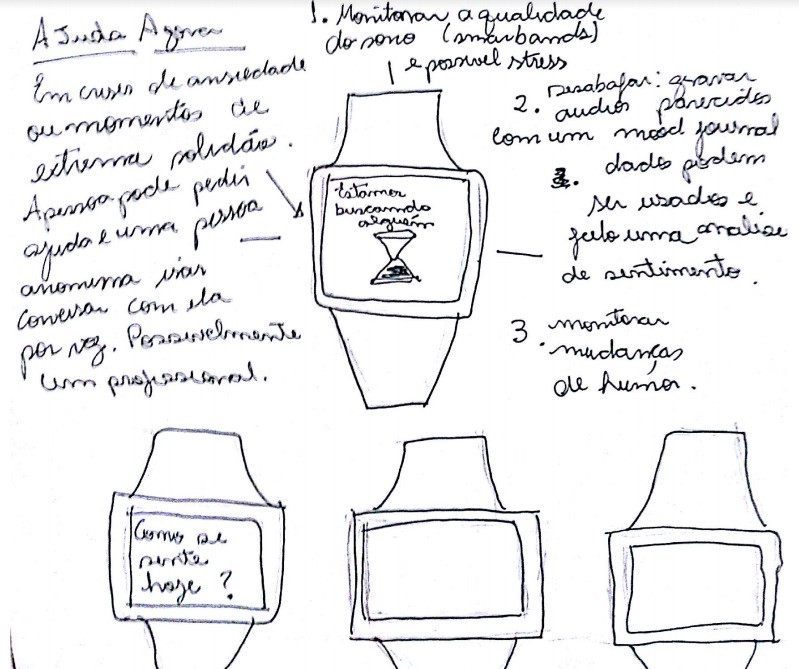 AJuda Agora
Em crises de ansiedade
ou momentos de
extrema solidão.
A pessoa pode pedir
ajuda e uma pessoa
anonima irá
conversar com ela
por voz. Possivelmente
um profissional.
1. Monitorar a qualidade
do sono (smarbands)
e possivel stress
Estamos
buscando
alguém
2. Desabafar: gravar
audios parecidos
com um mood journal
dados podem
ser usados e
feito uma analise
de sentimento.
3. monitorar
mudanças
de humor.
Como se
sente
hoje ?